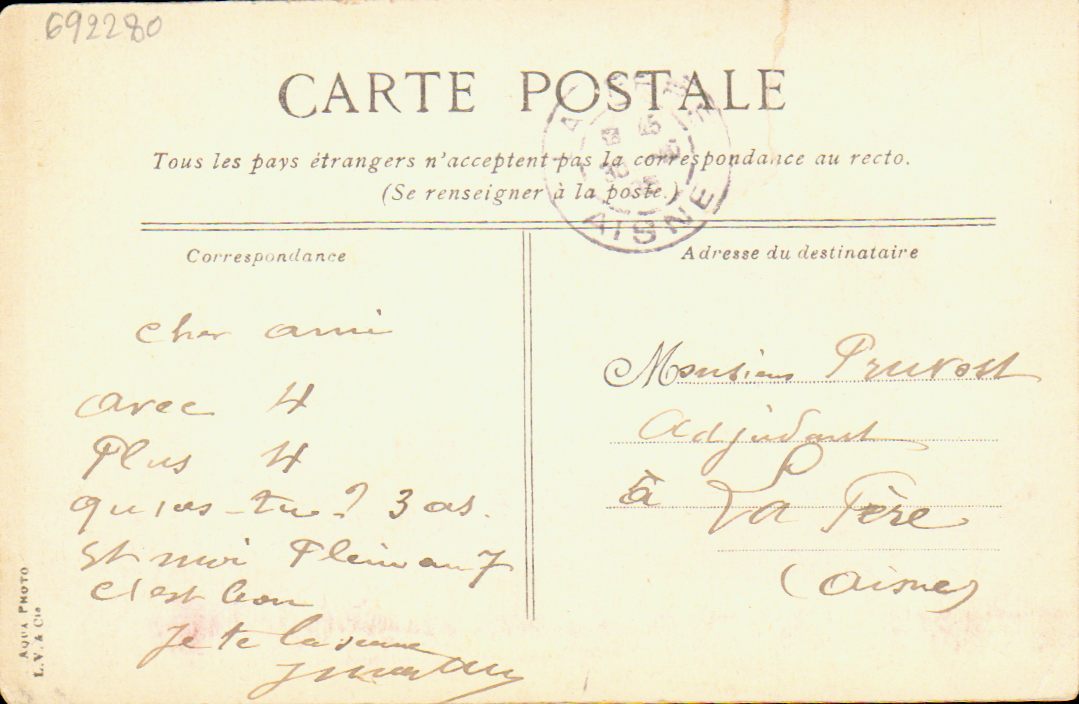 692280
CARTE POSTALE
Tous les pays étrangers n'acceptent pas la correspondance au recto.
(Se renseigner à la poste.)
AISNE
Correspondance
cher ami
avec 4
Plus 4
qu'as-tu? 3 as.
et moi Plein au 7
c'est bon
je te la
Adresse du destinataire
Monsieur Pruvost
Adjudant
à La Fère
(Aisne)
AQUA PHOTO
L.V. & Cie